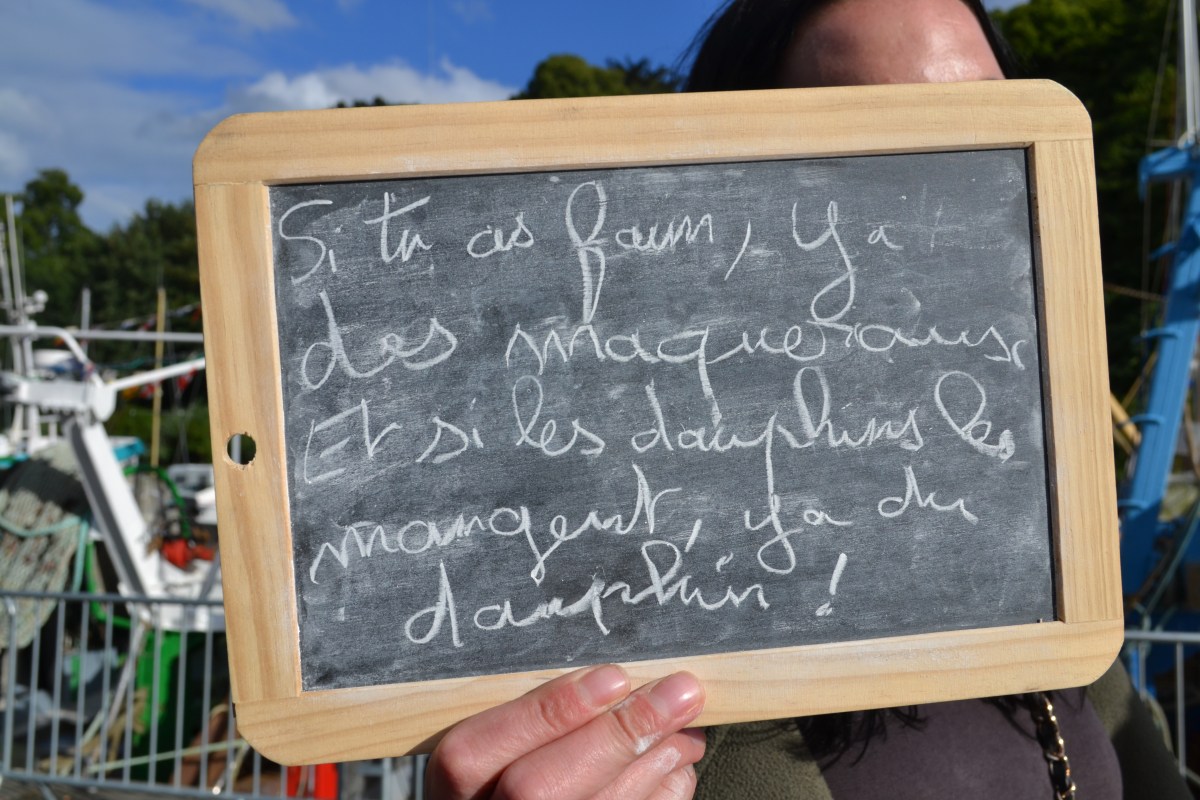 Si tu as faim, y a
des maqueraux.
Et si les dauphins les
mangent, y a du
dauphin !